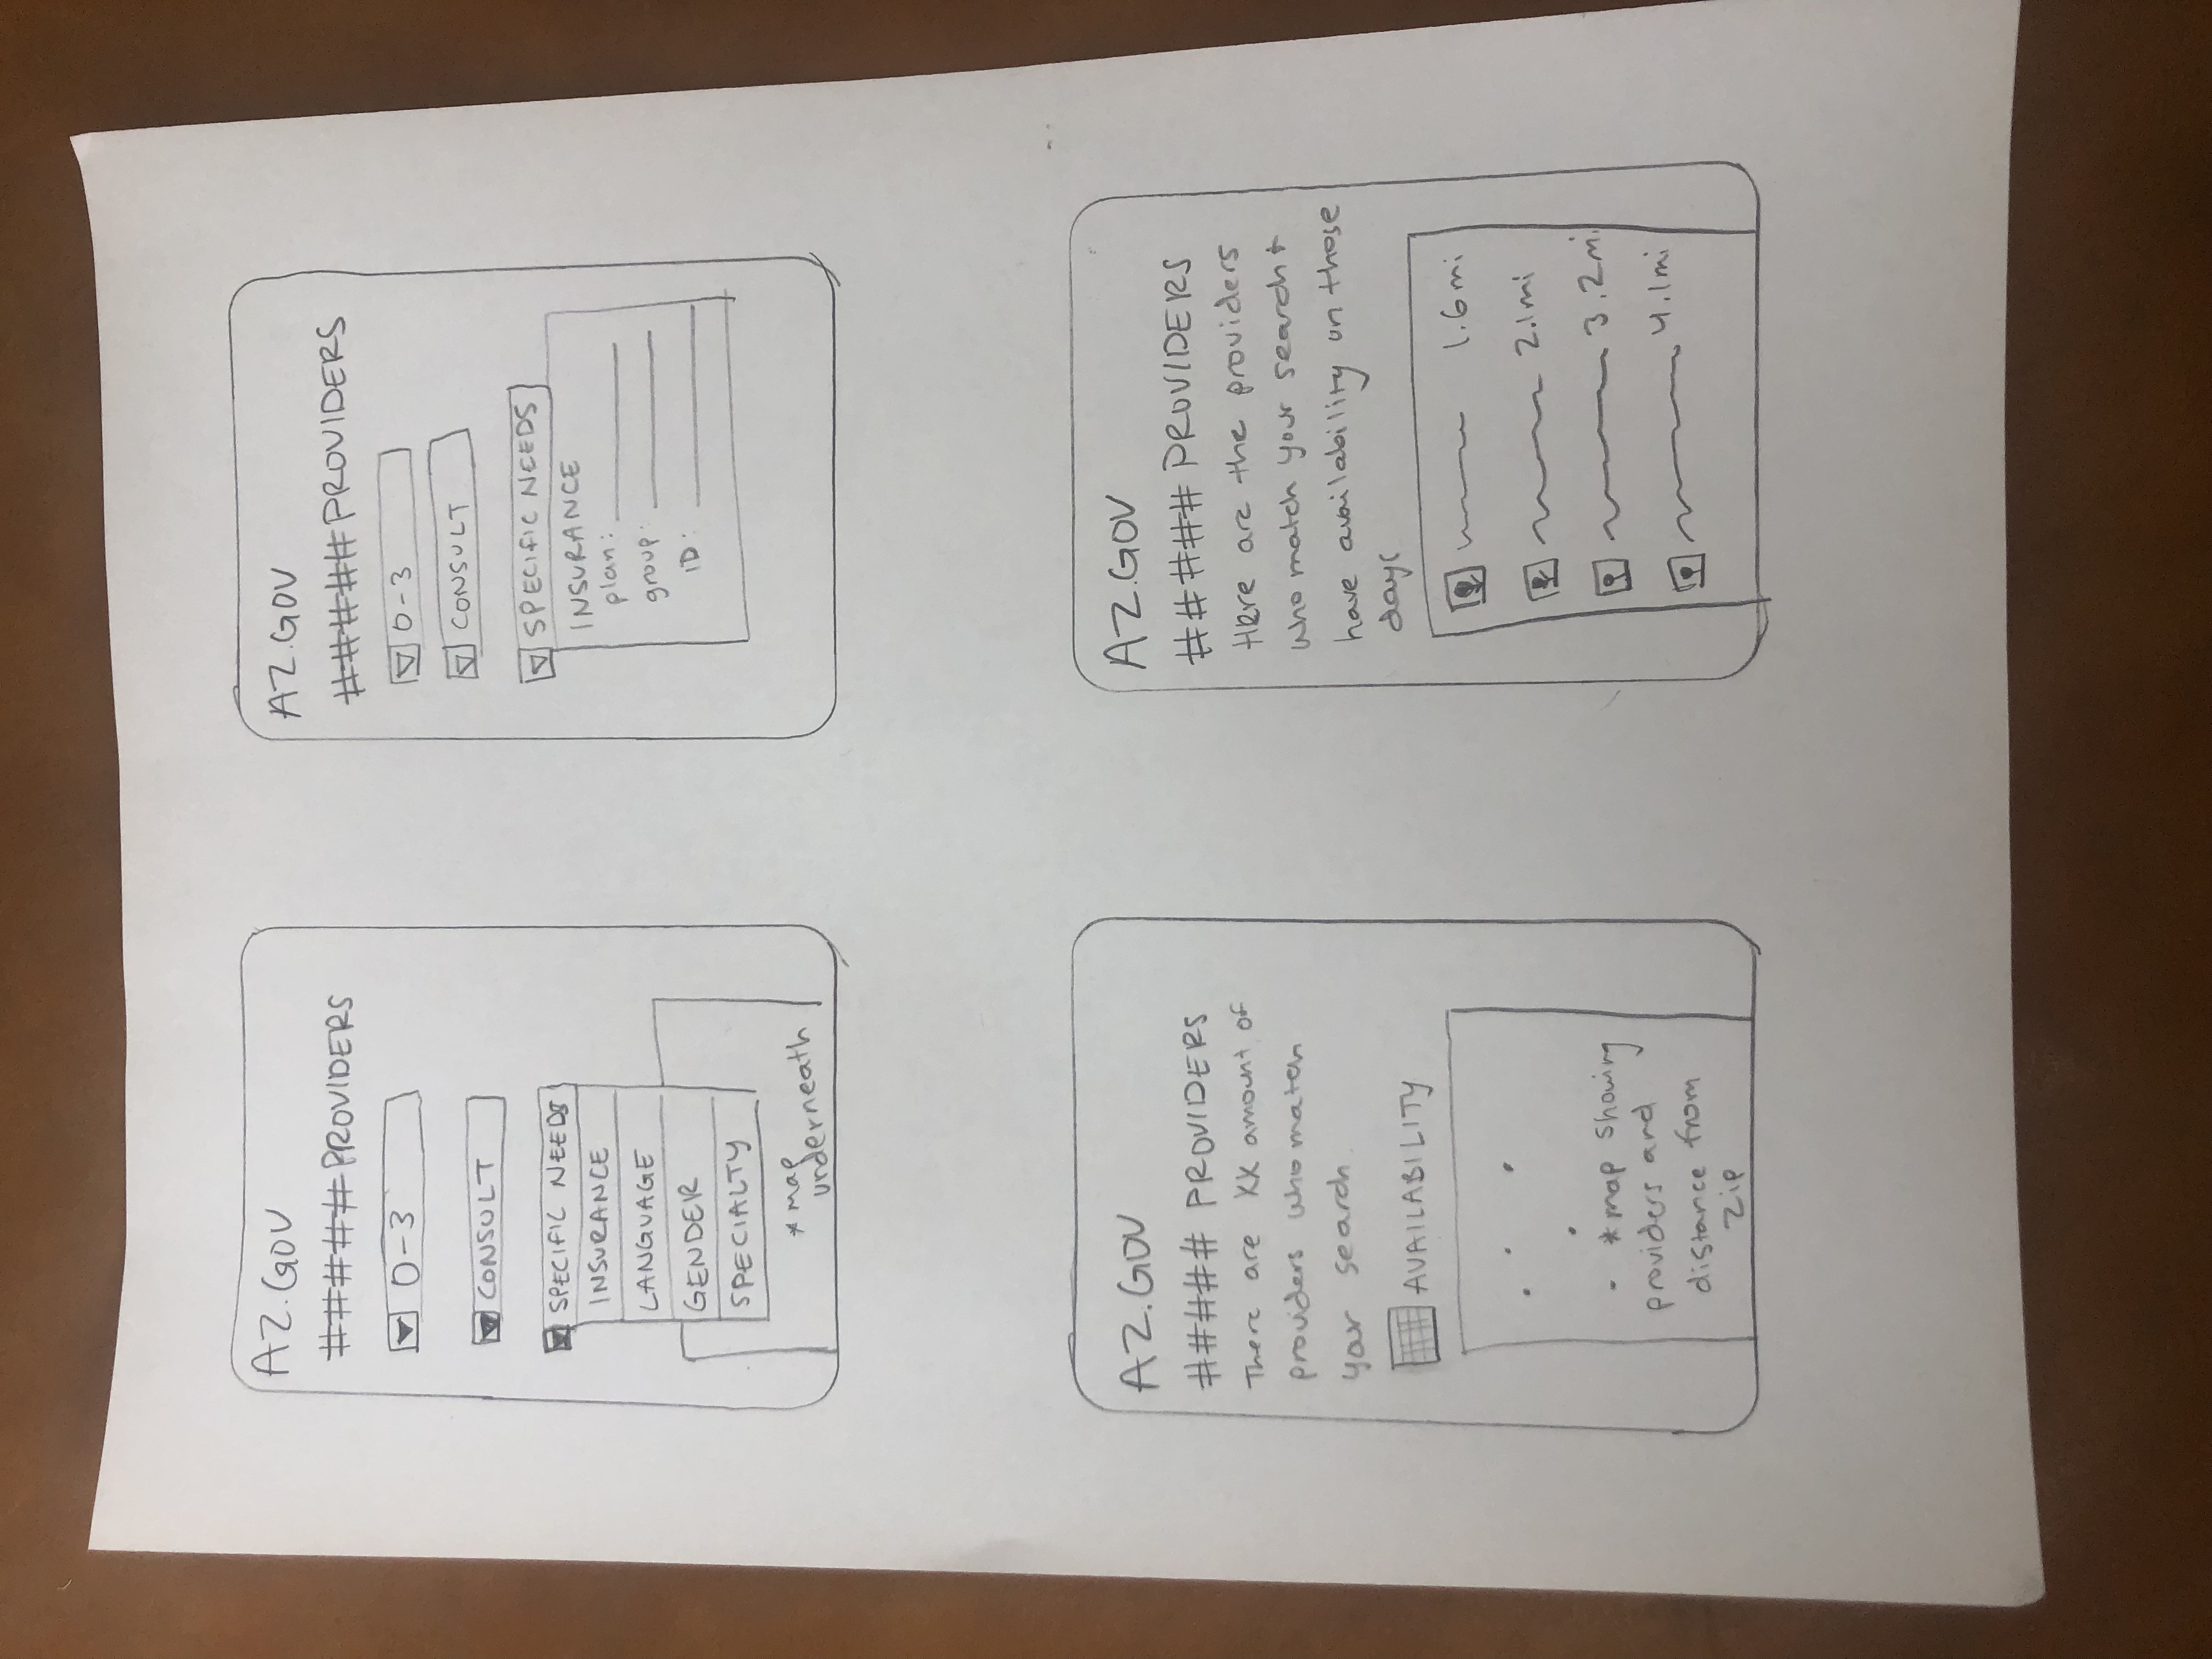 AZ.GOV
##### PROVIDERS
0-3
CONSULT
SPECIFIC NEEDS
INSURANCE
LANGUAGE
GENDER
SPECIALTY
*map
underneath
AZ.GOV
##### PROVIDERS
0-3
CONSULT
SPECIFIC NEEDS
INSURANCE
plan:
group:
ID:
AZ.GOV
##### PROVIDERS
There are XX amount of
providers who match
your search
AVAILABILITY
*map showing
providers and
distance from
zip
AZ.GOV
##### PROVIDERS
Here are the providers
who match your search +
have availability on those
days
1.6mi
2.1mi
3.2mi
4.1mi